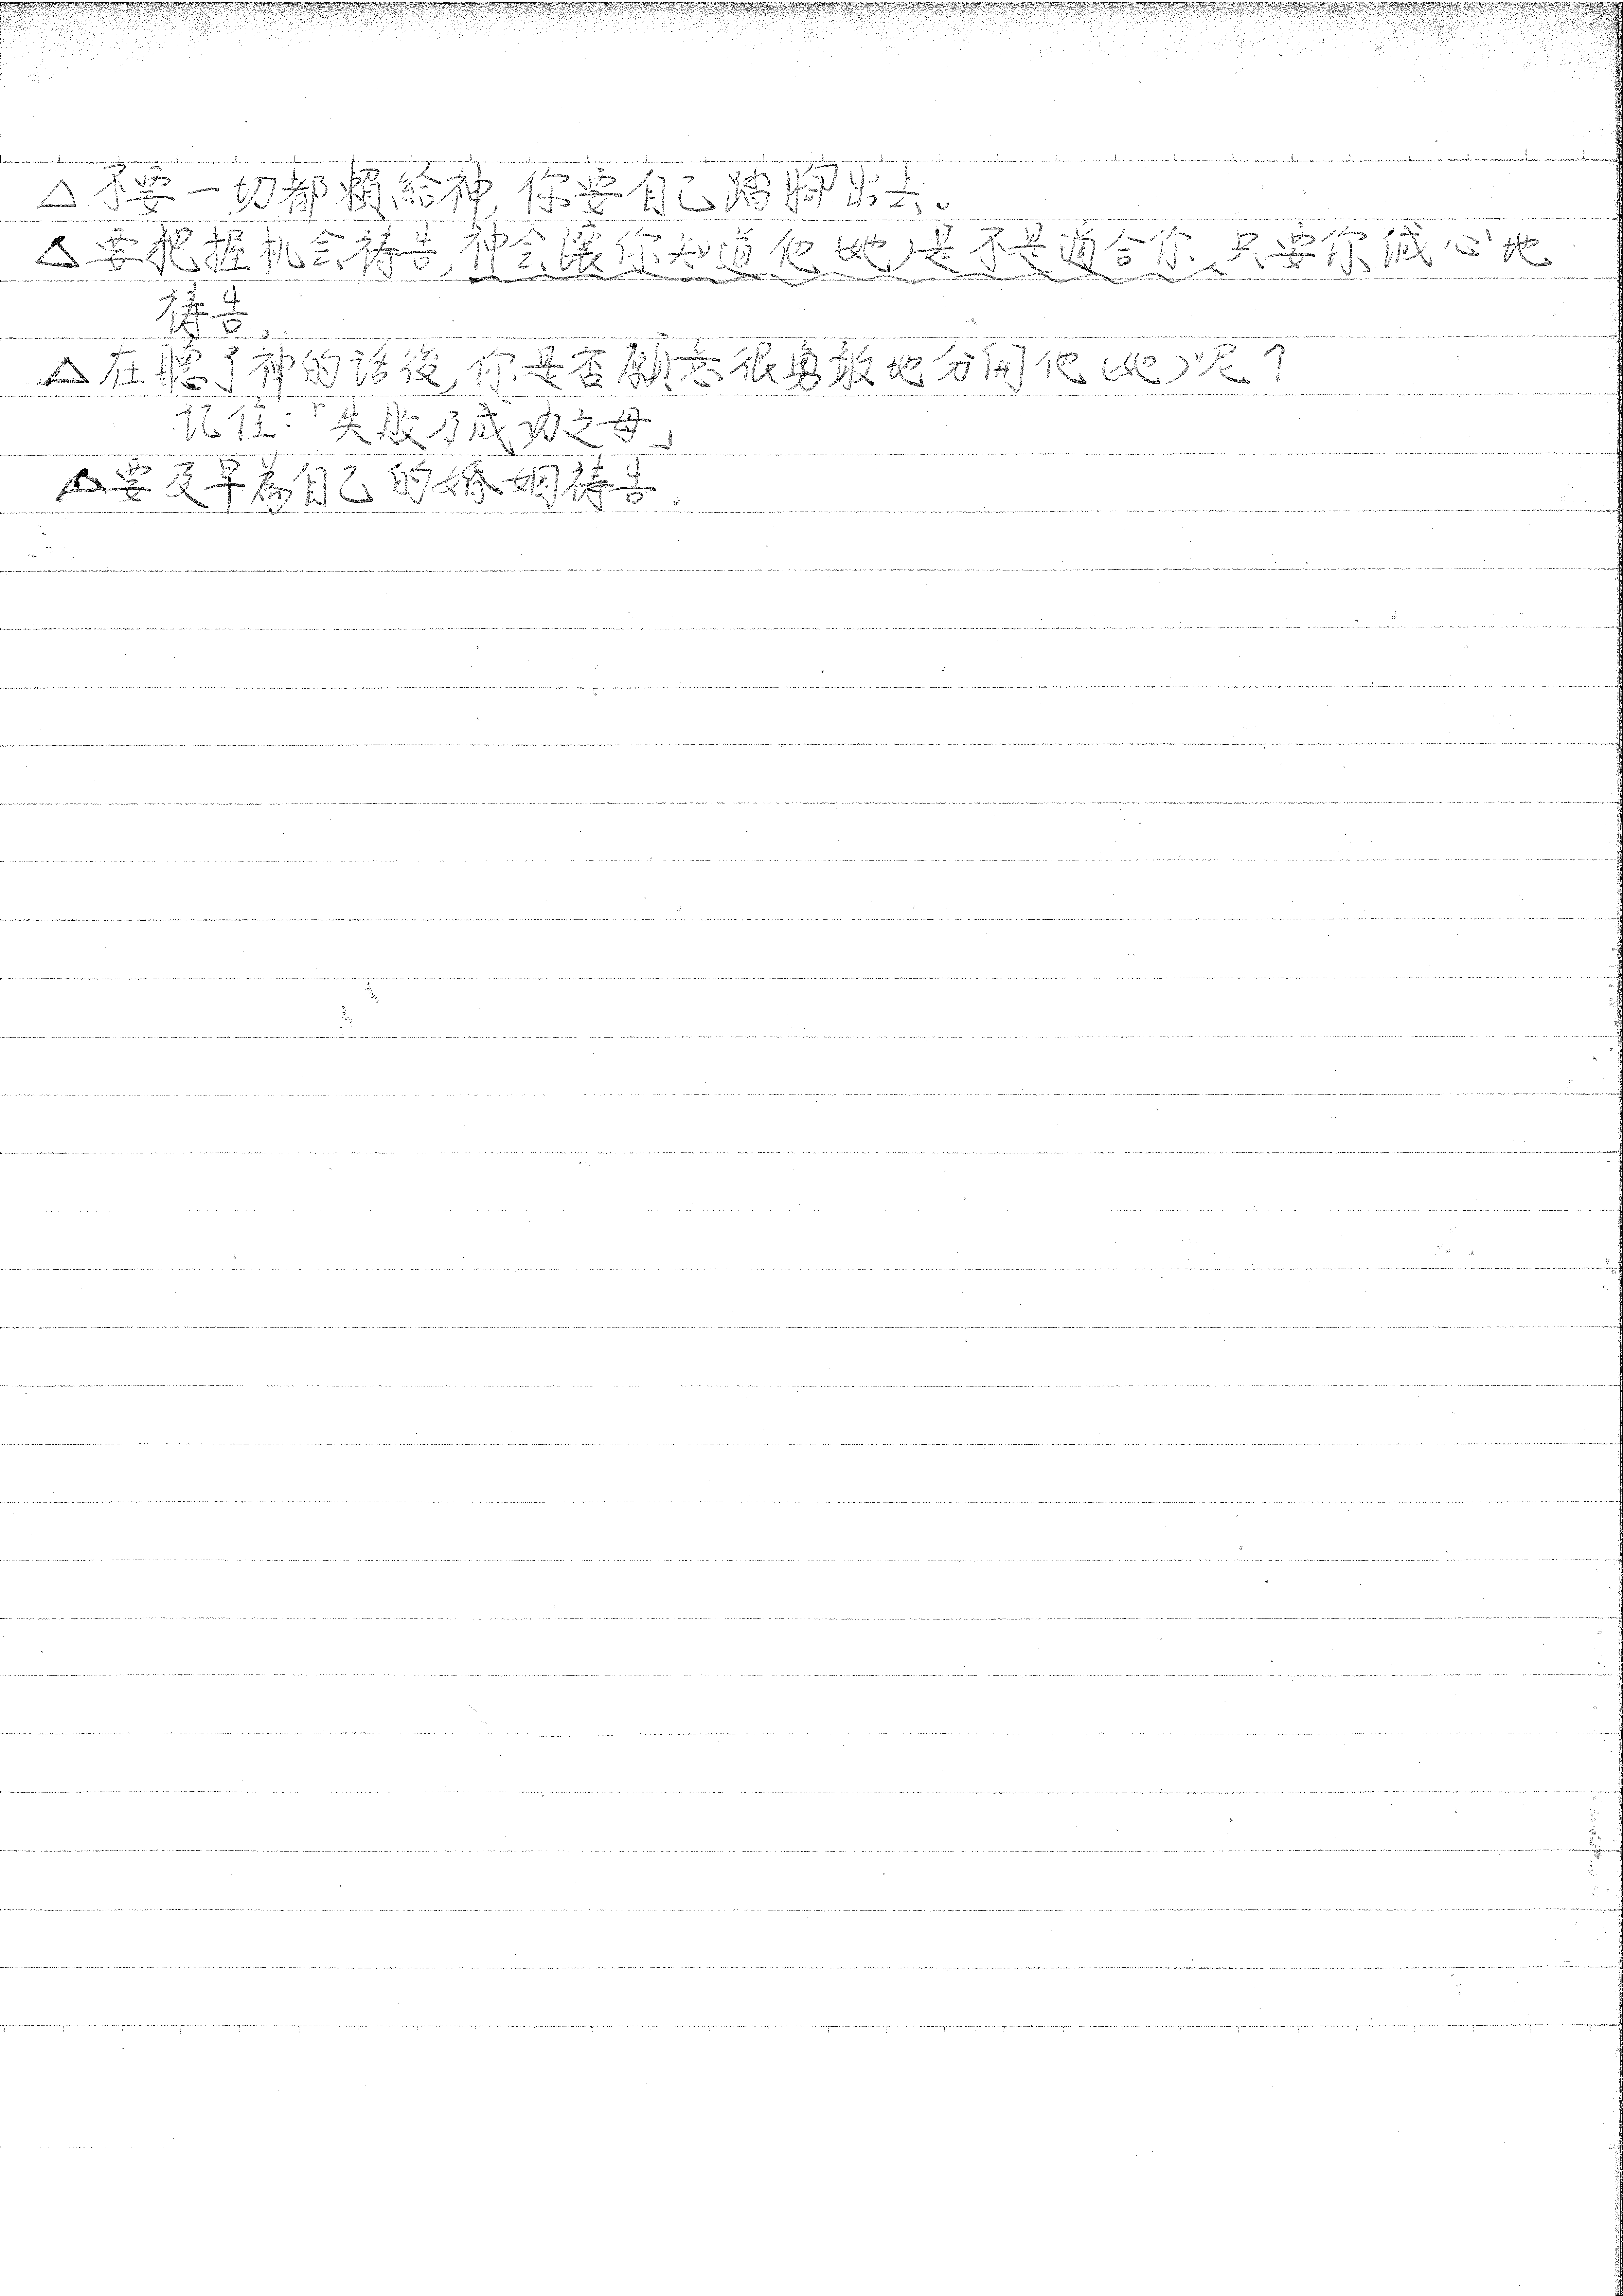 △ 不要一切都賴給神,你要自己踏腳出去。
△ 要把握机会祷告,神会讓你知道他(她)是不是適合你、只要你誠心地
祷告。
△ 在聽了神的话後,你是否願意很勇敢地分開他(她)呢?
记住:「失敗乃成功之母」
△ 要及早為自己的婚姻祷告。